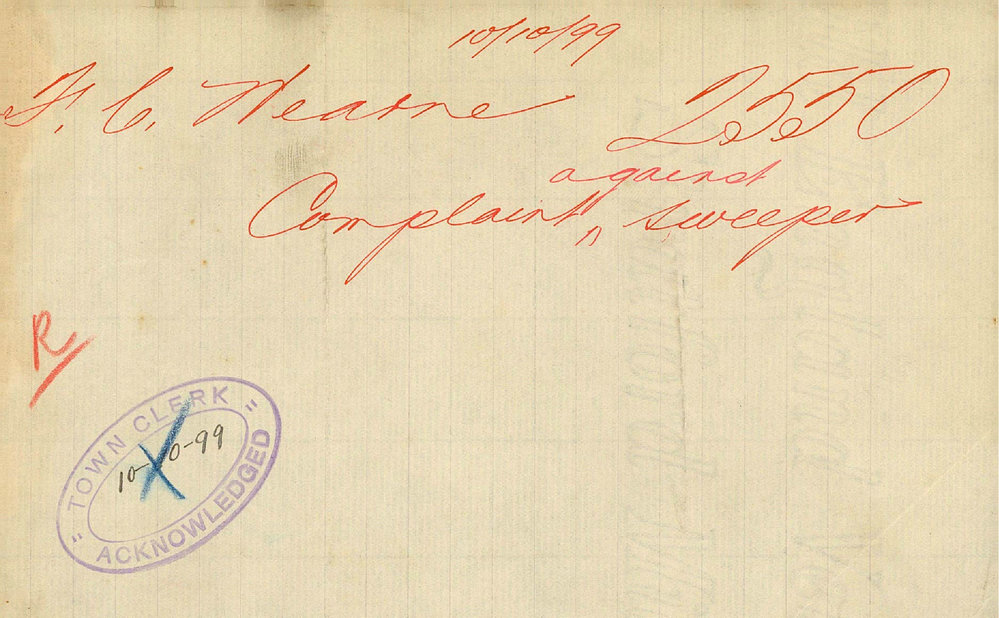 10/10/99
F. C. Hearne 2550
against
Complaint ^ sweeper
R
" TOWN CLERK "
10-10-99
ACKNOWLEDGED